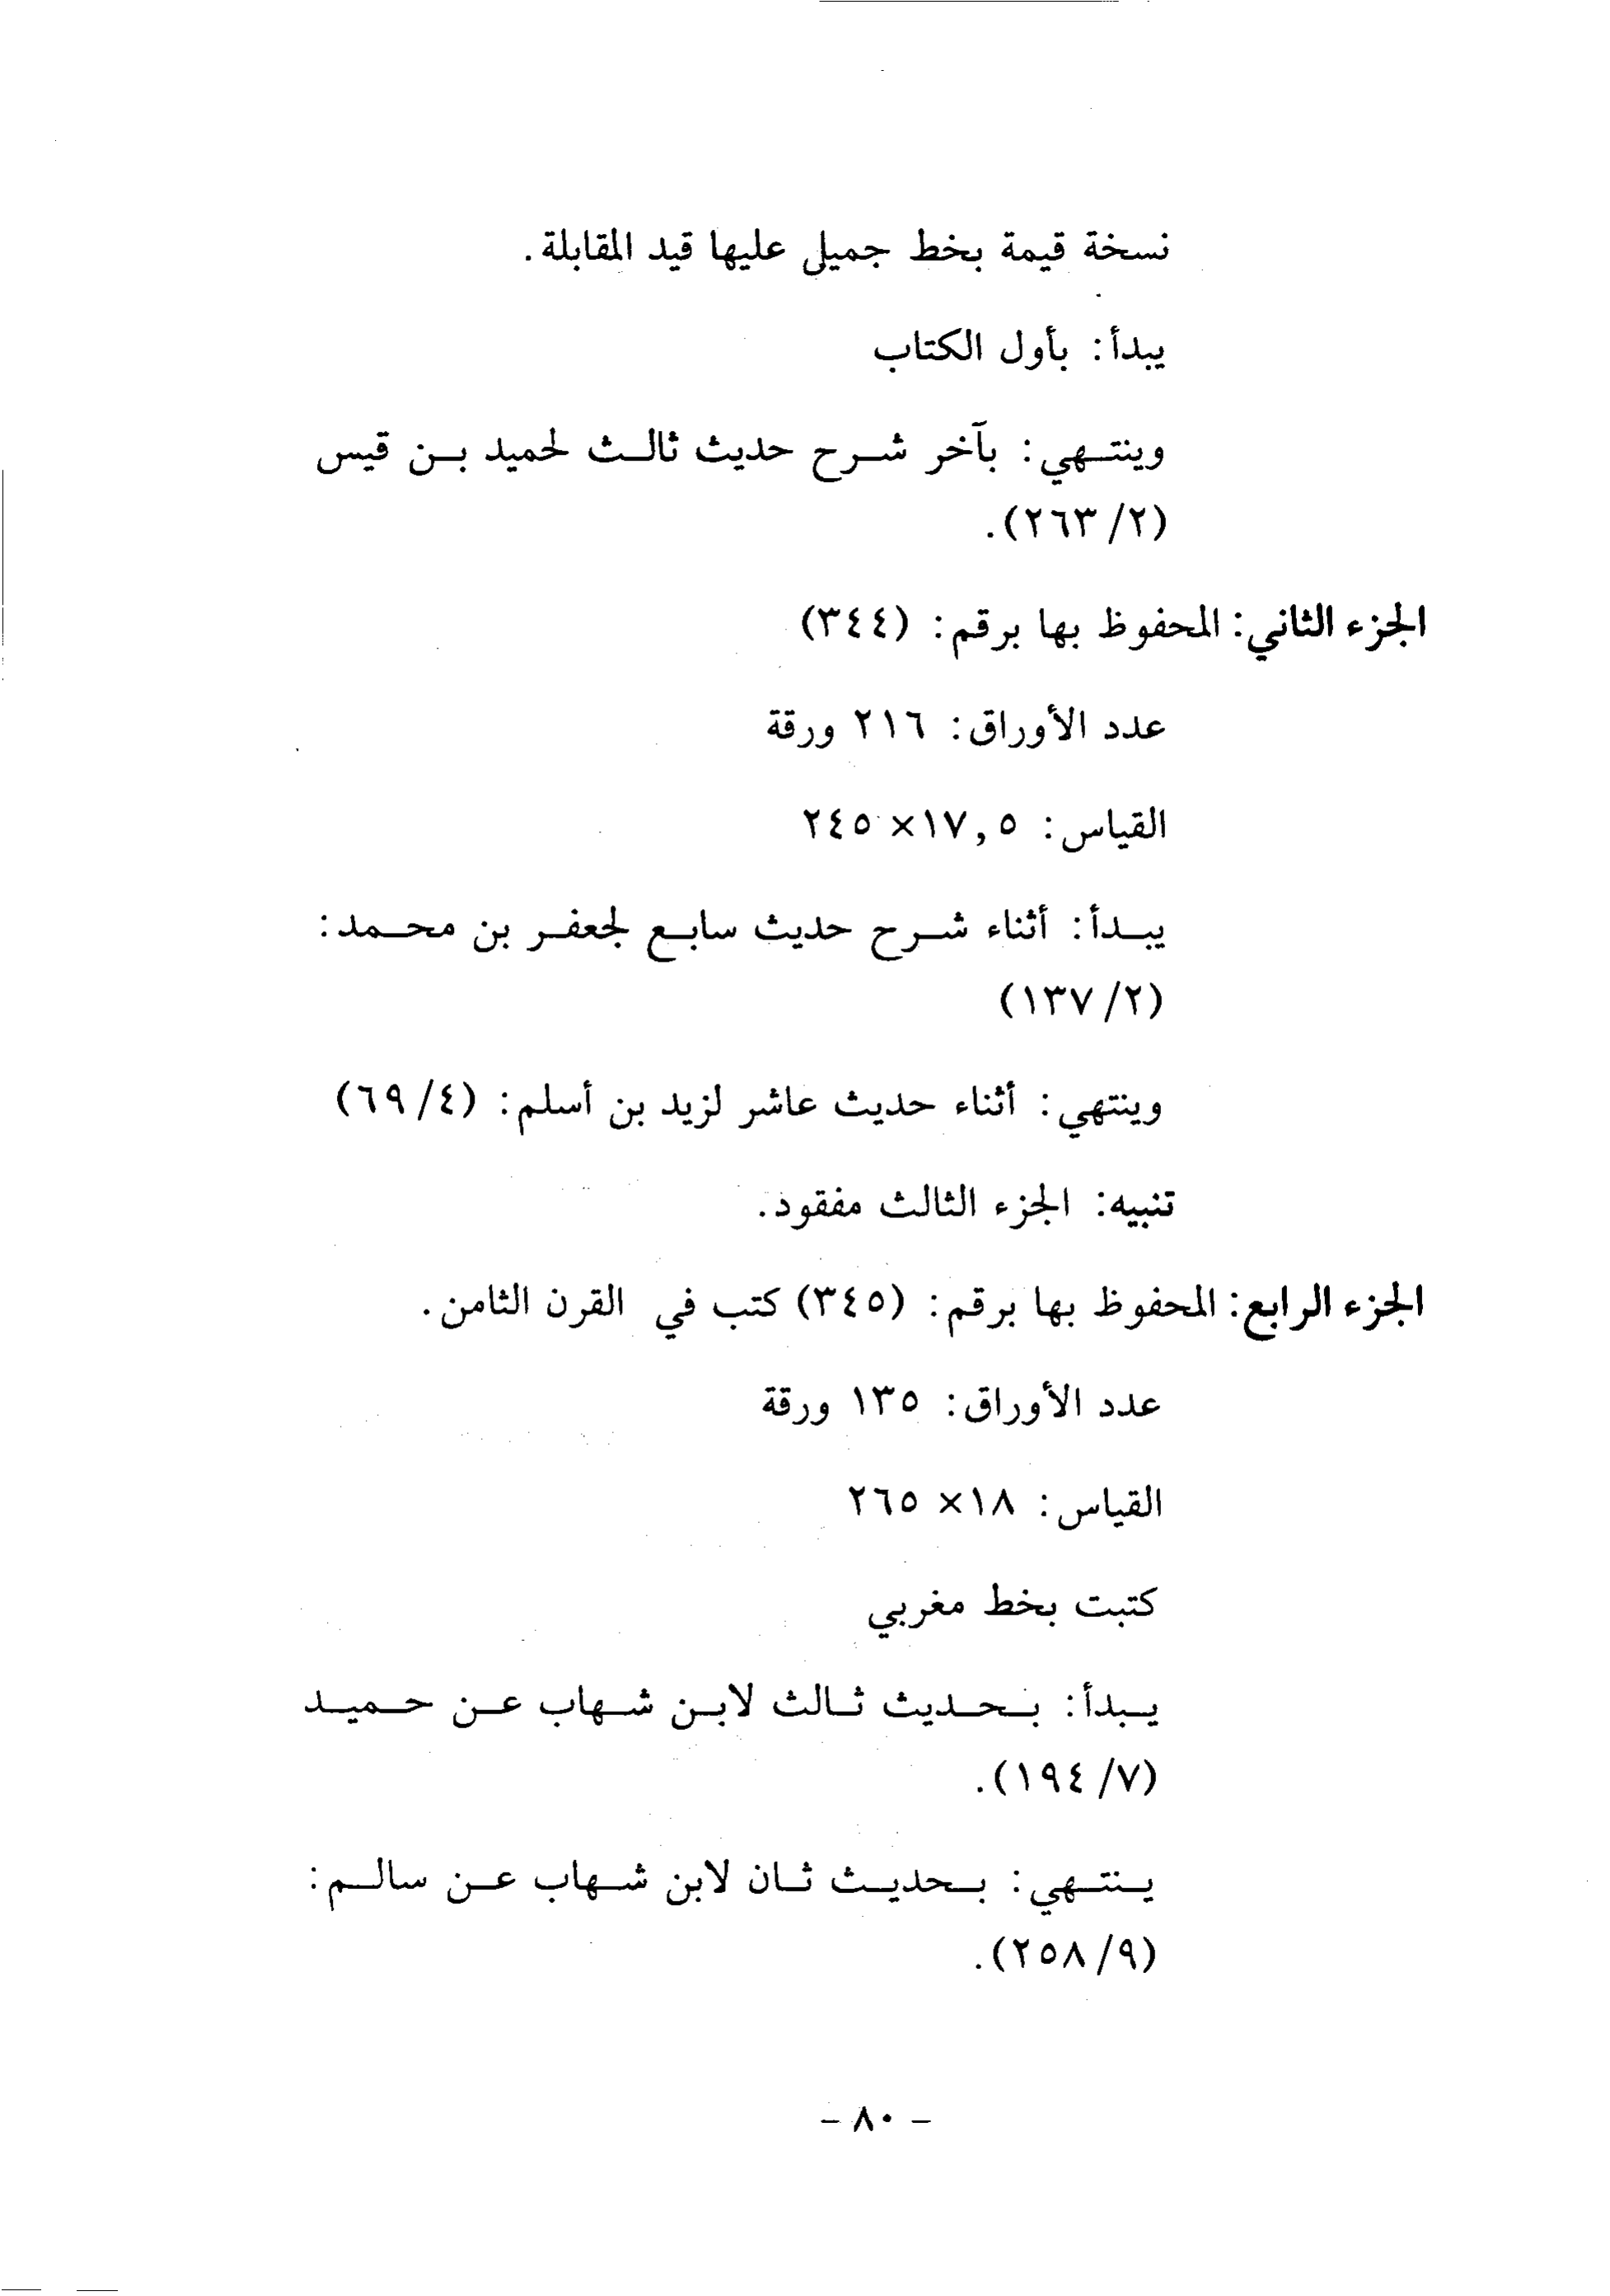 نسخة قيمة بخط جميل عليها قيد المقابلة.
يبدأ: بأول الكتاب
وينتهي: بآخر شرح حديث ثالث لحميد بن قيس
(٢/ ٢٦٣).
الجزء الثاني: المحفوظ بها برقم: (٣٤٤)
عدد الأوراق: ٢١٦ ورقة
القياس: ١٧,٥× ٢٤٥
يبدأ: أثناء شرح حديث سابع لجعفر بن محمد:
(٢/ ١٣٧)
وينتهي: أثناء حديث عاشر لزيد بن أسلم: (٤/ ٦٩)
تنبيه: الجزء الثالث مفقود.
الجزء الرابع: المحفوظ بها برقم: (٣٤٥) كتب في القرن الثامن.
عدد الأوراق: ١٣٥ ورقة
القياس: ١٨× ٢٦٥
كتبت بخط مغربي
يبدأ: بحديث ثالث لابن شهاب عن حميد
(٧/ ١٩٤).
ينتهي: بحديث ثان لابن شهاب عن سالم:
(٩/ ٢٥٨).
- ٨٠ -